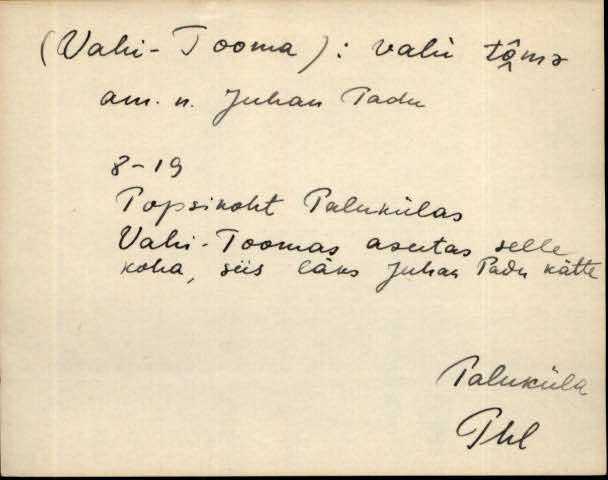 (Vahi-Tooma): vahi tô̭mə
am. n. Juhan Padu
8-19
Popsikoht Palukülas
Vahi-Toomas asutas selle
koha, siis läks Juhan Padu kätte
Paluküla
Phl